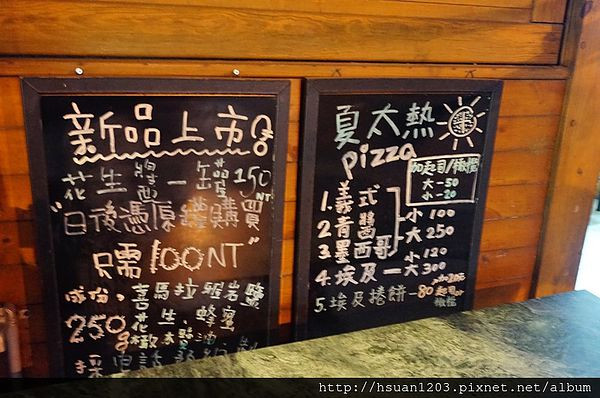 新品上市
花生醬一罐150NT
"日後憑原罐購買
只需100NT"
成份：喜馬拉雅岩鹽
250g 花生 蜂蜜
橄
採
夏太熱
pizza
加起司/橄欖
大-50
小-20
1.義式
2.青醬
3.墨西哥
小100
大250
4.埃及一
小120
大300
加20元
5.埃及捲餅-80 起司or
橄欖
http://hsuan1203.pixnet.net/album